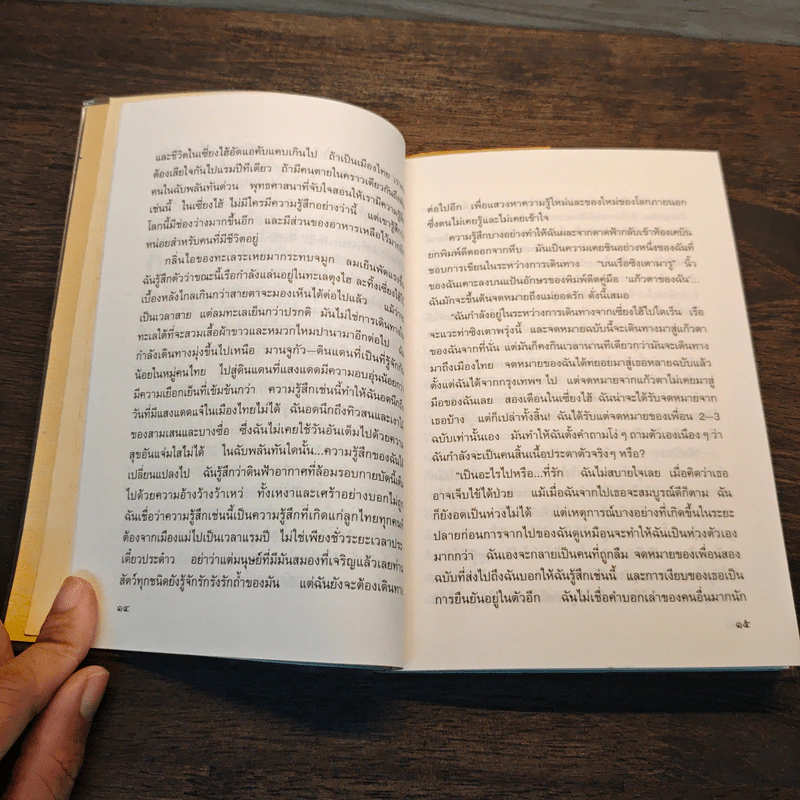 และชีวิตในเซี่ยงไฮ้อัดแอคับแคบเกินไป ถ้าเป็นเมืองไทย
ต้องเสียใจกันไปแรมปีทีเดียว ถ้ามีคนตายในคราวเดียวกันถึง
คนในฉับพลันทันด่วน พุทธศาสนาที่จับใจสอนให้เรามีความรู้สึก
เช่นนี้ ในเซี่ยงไฮ้ ไม่มีใครมีความรู้สึกอย่างว่านี้ แต่เขารู้สึก
โลกนี้มีช่องว่างมากขึ้นอีก และมีส่วนของอาหารเหลือไว้มากขึ้น
หน่อยสำหรับคนที่มีชีวิตอยู่
กลิ่นไอของทะเลระเหยมากระทบจมูก ลมเย็นพัดแรงขึ้น
ฉันรู้สึกตัวว่าขณะนี้เรือกำลังแล่นอยู่ในทะเลตุงไฮ ละทิ้งเซี่ยงไฮ้
เบื้องหลังไกลเกินกว่าสายตาจะมองเห็นได้ต่อไปแล้ว แม้ว่า
เป็นเวลาสาย แต่ลมทะเลเย็นกว่าปรกติ มันไม่ใช่การเดินทางใน
ทะเลใต้ที่จะสวมเสื้อผ้าขาวและหมวกไหมปานามาอีกต่อไป
กำลังเดินทางมุ่งขึ้นไปเหนือ มานจูกัว—ดินแดนที่เป็นที่รู้จักกัน
น้อยในหมู่คนไทย ไปสู่ดินแดนที่แสงแดดมีความอบอุ่นน้อยกว่า
มีความเยือกเย็นที่เข้มข้นกว่า ความรู้สึกเช่นนี้ทำให้ฉันอดนึกถึง
วันที่มีแสงแดดแจ๋ในเมืองไทยไม่ได้ ฉันอดนึกถึงทิวสนและเงาไม้
ของสามเสนและบางซื่อ ซึ่งฉันเคยใช้วันอันเต็มไปด้วยความ
สุขอันแจ่มใสไม่ได้ ในฉับพลันทันใดนั้น...ความรู้สึกของฉันได้
เปลี่ยนแปลงไป ฉันรู้สึกว่าดินฟ้าอากาศที่ล้อมรอบกายบัดนี้เต็ม
ไปด้วยความอ้างว้างว้าเหว่ ทั้งเหงาและเศร้าอย่างบอกไม่ถูก
ฉันเชื่อว่าความรู้สึกเช่นนี้เป็นความรู้สึกที่เกิดแก่ลูกไทยทุกคนที่
ต้องจากเมืองแม่ไปเป็นเวลาแรมปี ไม่ใช่เพียงชั่วระยะเวลา
เดี๋ยวประด๋าว อย่าว่าแต่มนุษย์ที่มีมันสมองที่เจริญแล้วเลยท่าน
สัตว์ทุกชนิดยังรู้จักรักรังรักถ้ำของมัน แต่ฉันยังจะต้องเดินทาง
๑๔
ต่อไปอีก เพื่อแสวงหาความรู้ใหม่และของใหม่ของโลกภายนอก
ซึ่งตนไม่เคยรู้และไม่เคยเข้าใจ
ความรู้สึกบางอย่างทำให้ฉันผละจากดาดฟ้ากลับเข้าห้องเคบิน
ยกพิมพ์ดีดออกจากหีบ มันเป็นความเคยชินอย่างหนึ่งของฉันที่
ชอบการเขียนในระหว่างการเดินทาง “บนเรือซิงเตามารู” นิ้ว
ของฉันเคาะลงบนแป้นอักษรของพิมพ์ดีดคู่มือ ‘แก้วตาของฉัน’...
ฉันมักจะขึ้นต้นจดหมายถึงแม่ยอดรัก ดังนี้เสมอ
“ฉันกำลังอยู่ในระหว่างการเดินทางจากเซี่ยงไฮ้ไปไดเร็น เรือ
จะแวะท่าซิงเตาพรุ่งนี้ และจดหมายฉบับนี้จะเดินทางมาสู่แก้วตา
ของฉันจากที่นั่น แต่มันก็คงกินเวลานานทีเดียวกว่ามันจะเดินทาง
มาถึงเมืองไทย จดหมายของฉันได้ทยอยมาสู่เธอหลายฉบับแล้ว
ตั้งแต่ฉันได้จากกรุงเทพฯ ไป แต่จดหมายจากแก้วตาไม่เคยมาสู่
มือของฉันเลย สองเดือนในเซี่ยงไฮ้ ฉันน่าจะได้รับจดหมายจาก
เธอบ้าง แต่ก็เปล่าทั้งสิ้น! ฉันได้รับแต่จดหมายของเพื่อน 2—3
ฉบับเท่านั้นเอง มันทำให้ฉันตั้งคำถามโง่ๆ ถามตัวเองเนืองๆ ว่า
ฉันกำลังจะเป็นคนสิ้นเนื้อประดาตัวจริงๆ หรือ?
“เป็นอะไรไปหรือ...ที่รัก ฉันไม่สบายใจเลย เมื่อคิดว่าเธอ
อาจเจ็บไข้ได้ป่วย แม้เมื่อฉันจากไปเธอจะสมบูรณ์ดีก็ตาม ฉัน
ก็ยังอดเป็นห่วงไม่ได้ แต่เหตุการณ์บางอย่างที่เกิดขึ้นในระยะ
ปลายก่อนการจากไปของฉันดูเหมือนจะทำให้ฉันเป็นห่วงตัวเอง
มากกว่า ฉันเองจะกลายเป็นคนที่ถูกลืม จดหมายของเพื่อนสอง
ฉบับที่ส่งไปถึงฉันบอกให้ฉันรู้สึกเช่นนี้ และการเงียบของเธอเป็น
การยืนยันอยู่ในตัวอีก ฉันไม่เชื่อคำบอกเล่าของคนอื่นมากนัก
๑๕